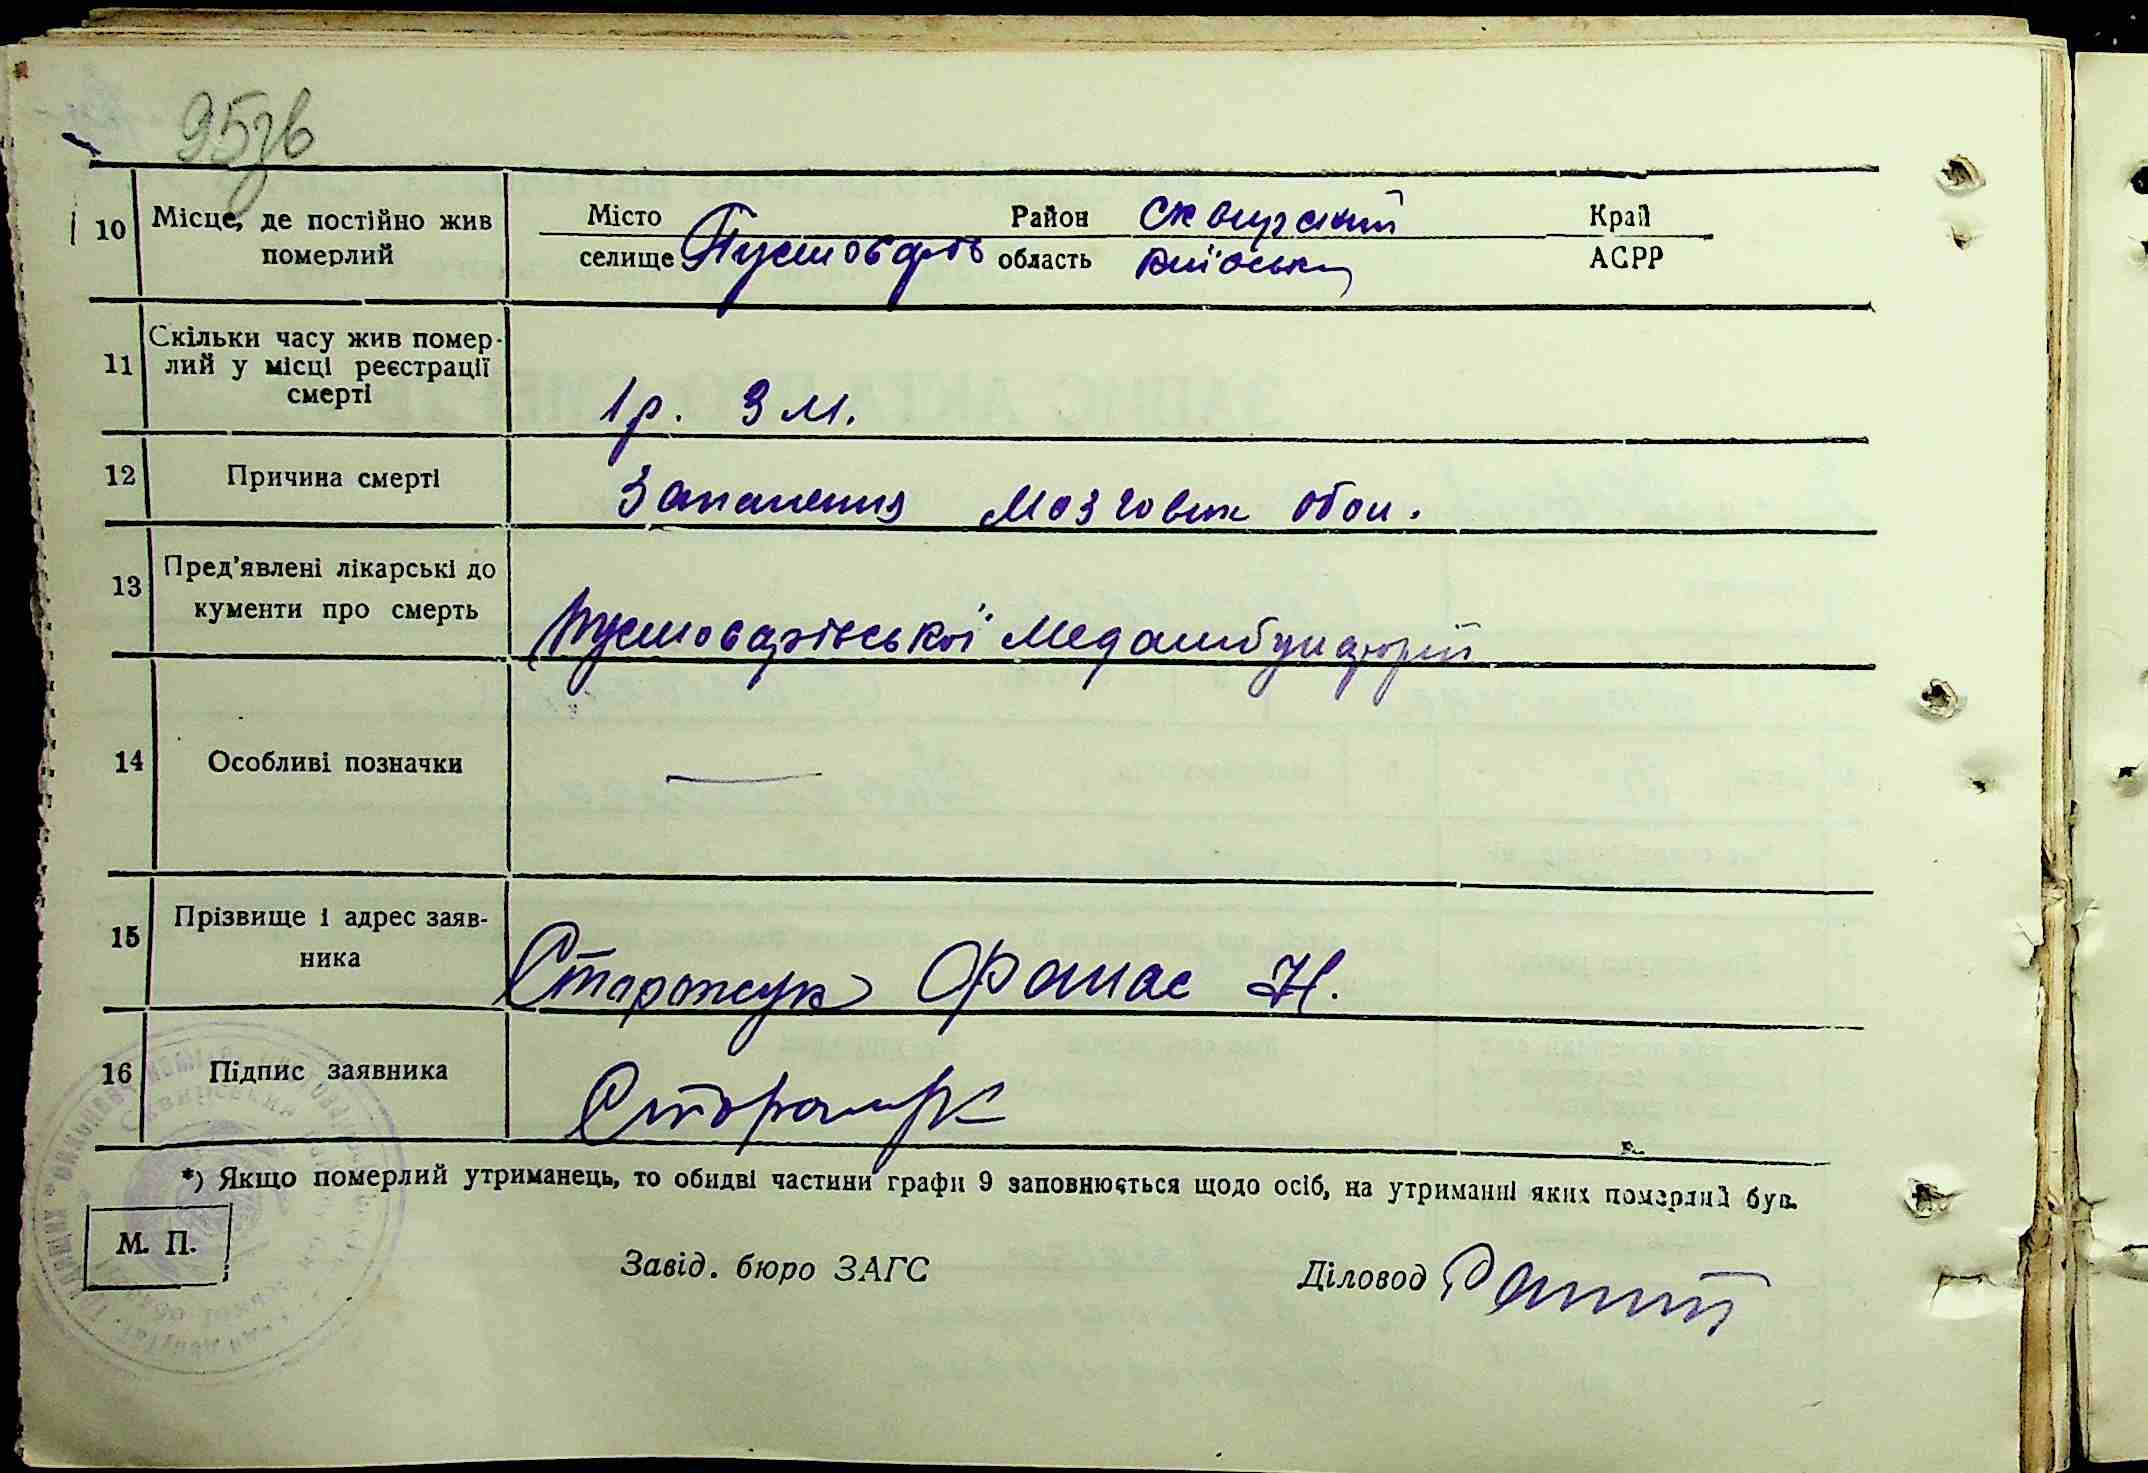 95зв
10 Місце, де постійно жив померлий
Місто Район Сквирский Край
селище Пустоварів область Київськ АСРР
11 Скільки часу жив помер-
лий у місці реєстрації
смерті
1 р. 3 м.
12 Причина смерті Запалення мозгових обол.
13 Пред'явлені лікарські до
кументи про смерть
Пустоварівської медамбулаторії
14 Особливі позначки —
15 Прізвище і адрес заяв-
ника
Сторожук Фанас Н.
16 Підпис заявника
*) Якщо померлий утриманець, то обидві частини графи 9 заповнюється щодо осіб, на утриманні яких померлий був.
М. П.
Завід. бюро ЗАГС Діловод